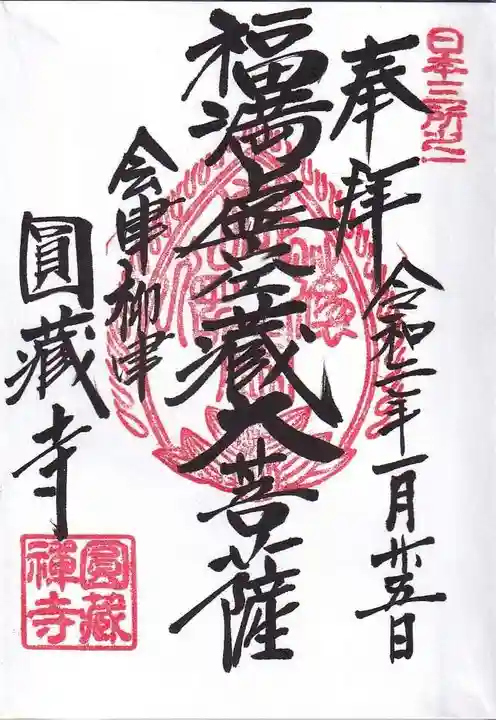 日本三所之一
奉拝
令和二年一月廿五日
福満虚空藏大菩薩
会津柳津
圓藏寺
圓藏
禅寺